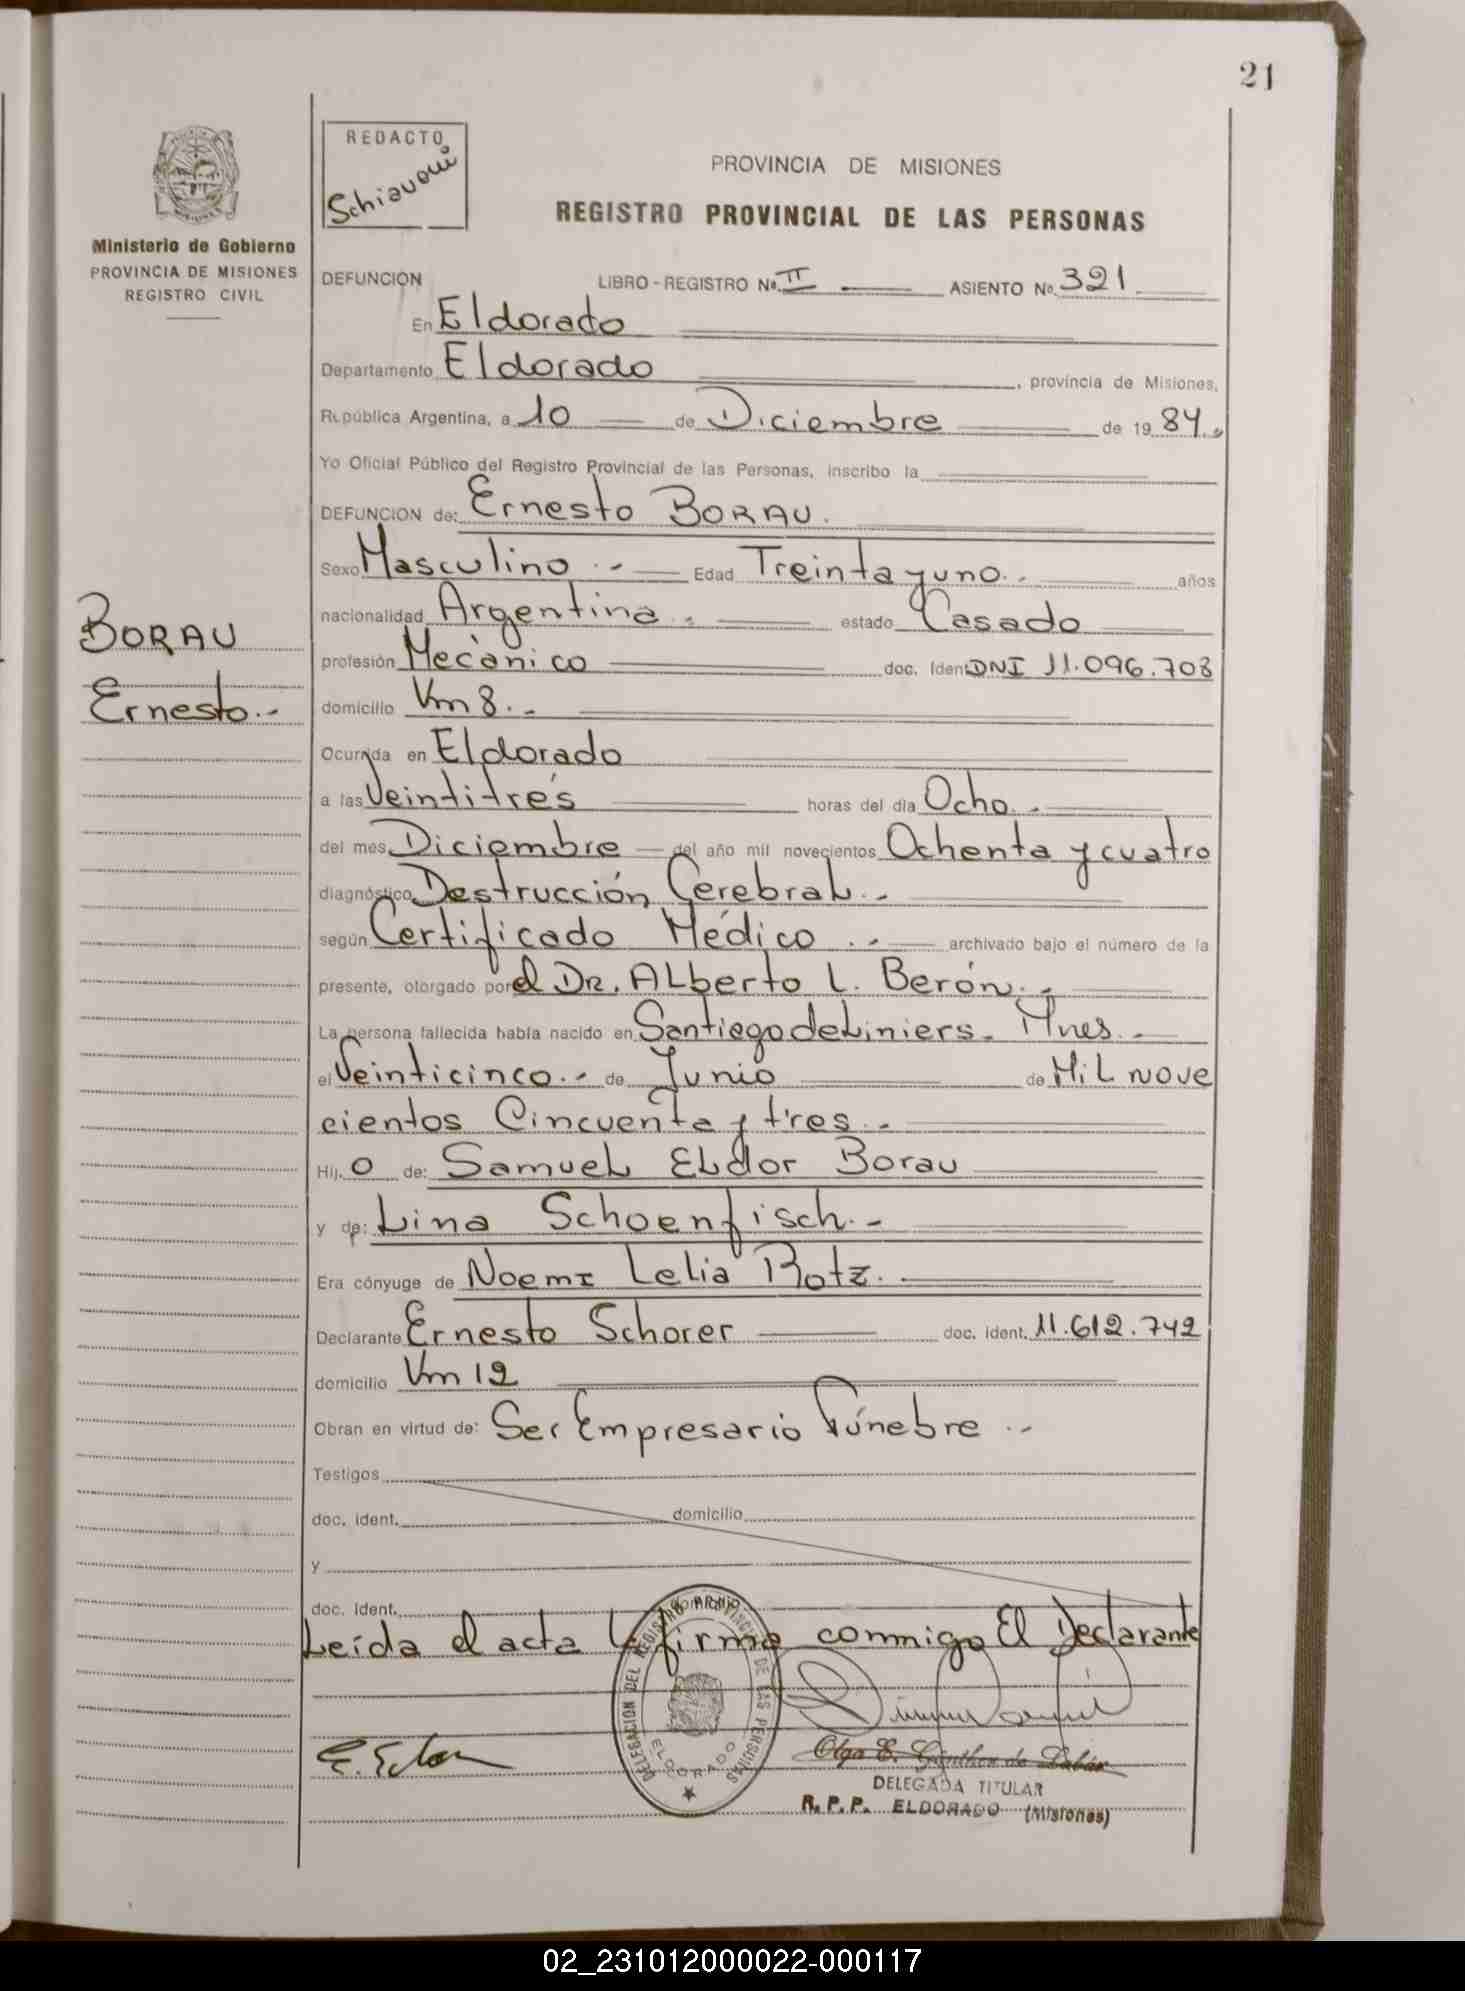 21
REDACTO
Schiavoni
PROVINCIA DE MISIONES
REGISTRO PROVINCIAL DE LAS PERSONAS
Ministerio de Gobierno
PROVINCIA DE MISIONES
REGISTRO CIVIL
DEFUNCION LIBRO - REGISTRO No. II ASIENTO No. 321
En Eldorado
Departamento Eldorado, provincia de Misiones,
República Argentina, a 10 de Diciembre de 1984.
Yo Oficial Público del Registro Provincial de las Personas, inscribo la
DEFUNCION de: Ernesto BORAU.
Sexo Masculino.- Edad Treinta y uno.- años
nacionalidad Argentina.- estado Casado
BORAU
Ernesto.-
profesión Mecánico doc. Iden DNI 11.096.708
domicilio Km 8.-
Ocurrida en Eldorado
a las Veintitrés horas del día Ocho.-
del mes Diciembre del año mil novecientos Ochenta y cuatro
diagnóstico Destrucción Cerebral.-
según Certificado Médico.- archivado bajo el número de la
presente, otorgado por el Dr. Alberto L. Berón.-
La persona fallecida había nacido en Santiago de Liniers. Mnes.-
el Veinticinco.- de Junio de Mil nove
cientos Cincuenta y tres.-
Hij o de: Samuel Eldor Borau
y de: Lina Schoenfisch.-
Era cónyuge de Noemi Lelia Rotz.
Declarante Ernesto Schorer doc. ident. 11.612.742
domicilio Km 12
Obran en virtud de: Ser Empresario Fúnebre.-
Testigos
doc. ident. domicilio
y
doc. ident.
Leída el acta la firma conmigo El Declarante
DELEGACION DEL REGISTRO PROVINCIAL DE LAS PERSONAS
ELDORADO
Olga E. Günther de
DELEGADA TITULAR
R.P.P. ELDORADO (Misiones)
02_231012000022-000117